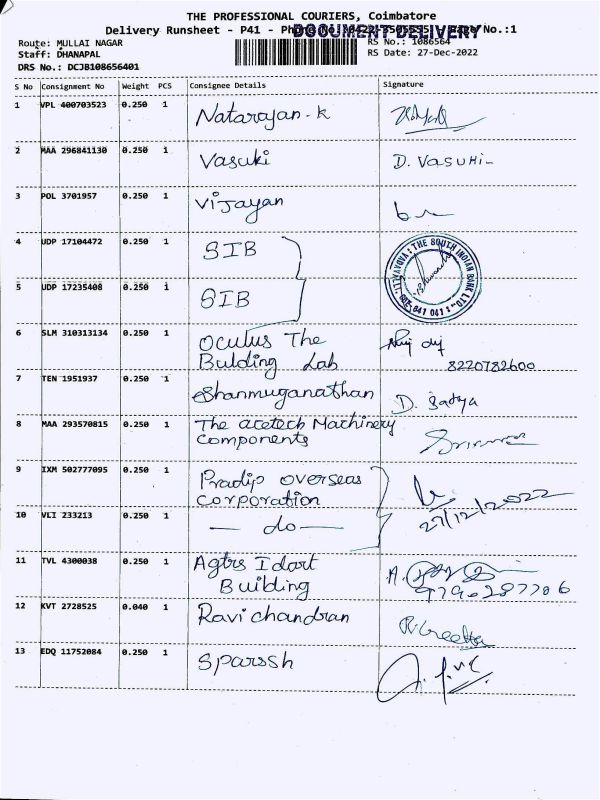 THE PROFESSIONAL COURIERS, Coimbatore
DOCUMENT DELIVERY
Delivery Runsheet - P41 - Page No.:1
Route: MULLAI NAGAR
RS No.: 1086564
Staff: DHANAPAL
RS Date: 27-Dec-2022
DRS No.: DCJB108656401
S No Consignment No Weight PCS Consignee Details Signature
1 VPL 400703523 0.250 1 Natarajan-k
2 MAA 296841130 0.250 1 Vasuki D. Vasuki
3 POL 3701957 0.250 1 Vijayan
4 UDP 17104472 0.250 1 SIB
THE SOUTH INDIAN BANK LTD.
641 041
5 UDP 17235408 0.250 1 SIB
6 SLM 310313134 0.250 1 Oculus The
Bulding Lab
8220782600
7 TEN 1951937 0.250 1 Shanmuganathan D. Satya
8 MAA 293570815 0.250 1 The acetech Machinery
Components
9 IXM 502777095 0.250 1 Pradip overseas
corporation
27/12/2022
10 VLI 233213 0.250 1 — do —
11 TVL 4300038 0.250 1 Agtrs Idart
Building
9790287706
12 KVT 2728525 0.040 1 Ravi chandran R. Geetha
13 EDQ 11752084 0.250 1 Sparssh